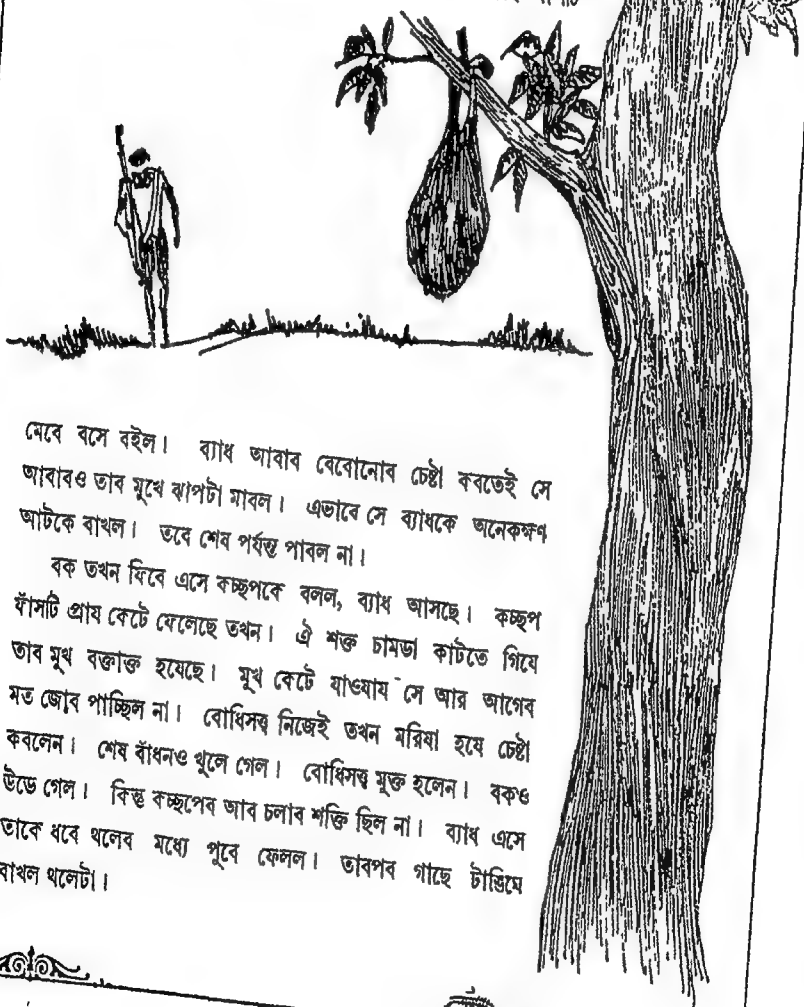 মেবে বসে বইল। ব্যাধ আবাব বেবোনোব চেষ্টা কবতেই সে
আবাবও তাব মুখে ঝাপটা মাবল। এভাবে সে ব্যাধকে অনেকক্ষণ
আটকে বাখল। তবে শেষ পর্যন্ত পাবল না।
বক তখন ফিবে এসে কচ্ছপকে বলল, ব্যাধ আসছে। কচ্ছপ
ফাঁসটি প্রায কেটে ফেলেছে তখন। ঐ শক্ত চামডা কাটতে গিযে
তাব মুখ বক্তাক্ত হযেছে। মুখ কেটে যাওযায সে আর আগেব
মত জোব পাচ্ছিল না। বোধিসত্ত্ব নিজেই তখন মরিযা হযে চেষ্টা
কবলেন। শেষ বাঁধনও খুলে গেল। বোধিসত্ত্ব মুক্ত হলেন। বকও
উডে গেল। কিন্তু কচ্ছপেব আব চলাব শক্তি ছিল না। ব্যাধ এসে
তাকে ধবে থলেব মধ্যে পুবে ফেলল। তাবপব গাছে টাঙিযে
বাখল থলেটা।